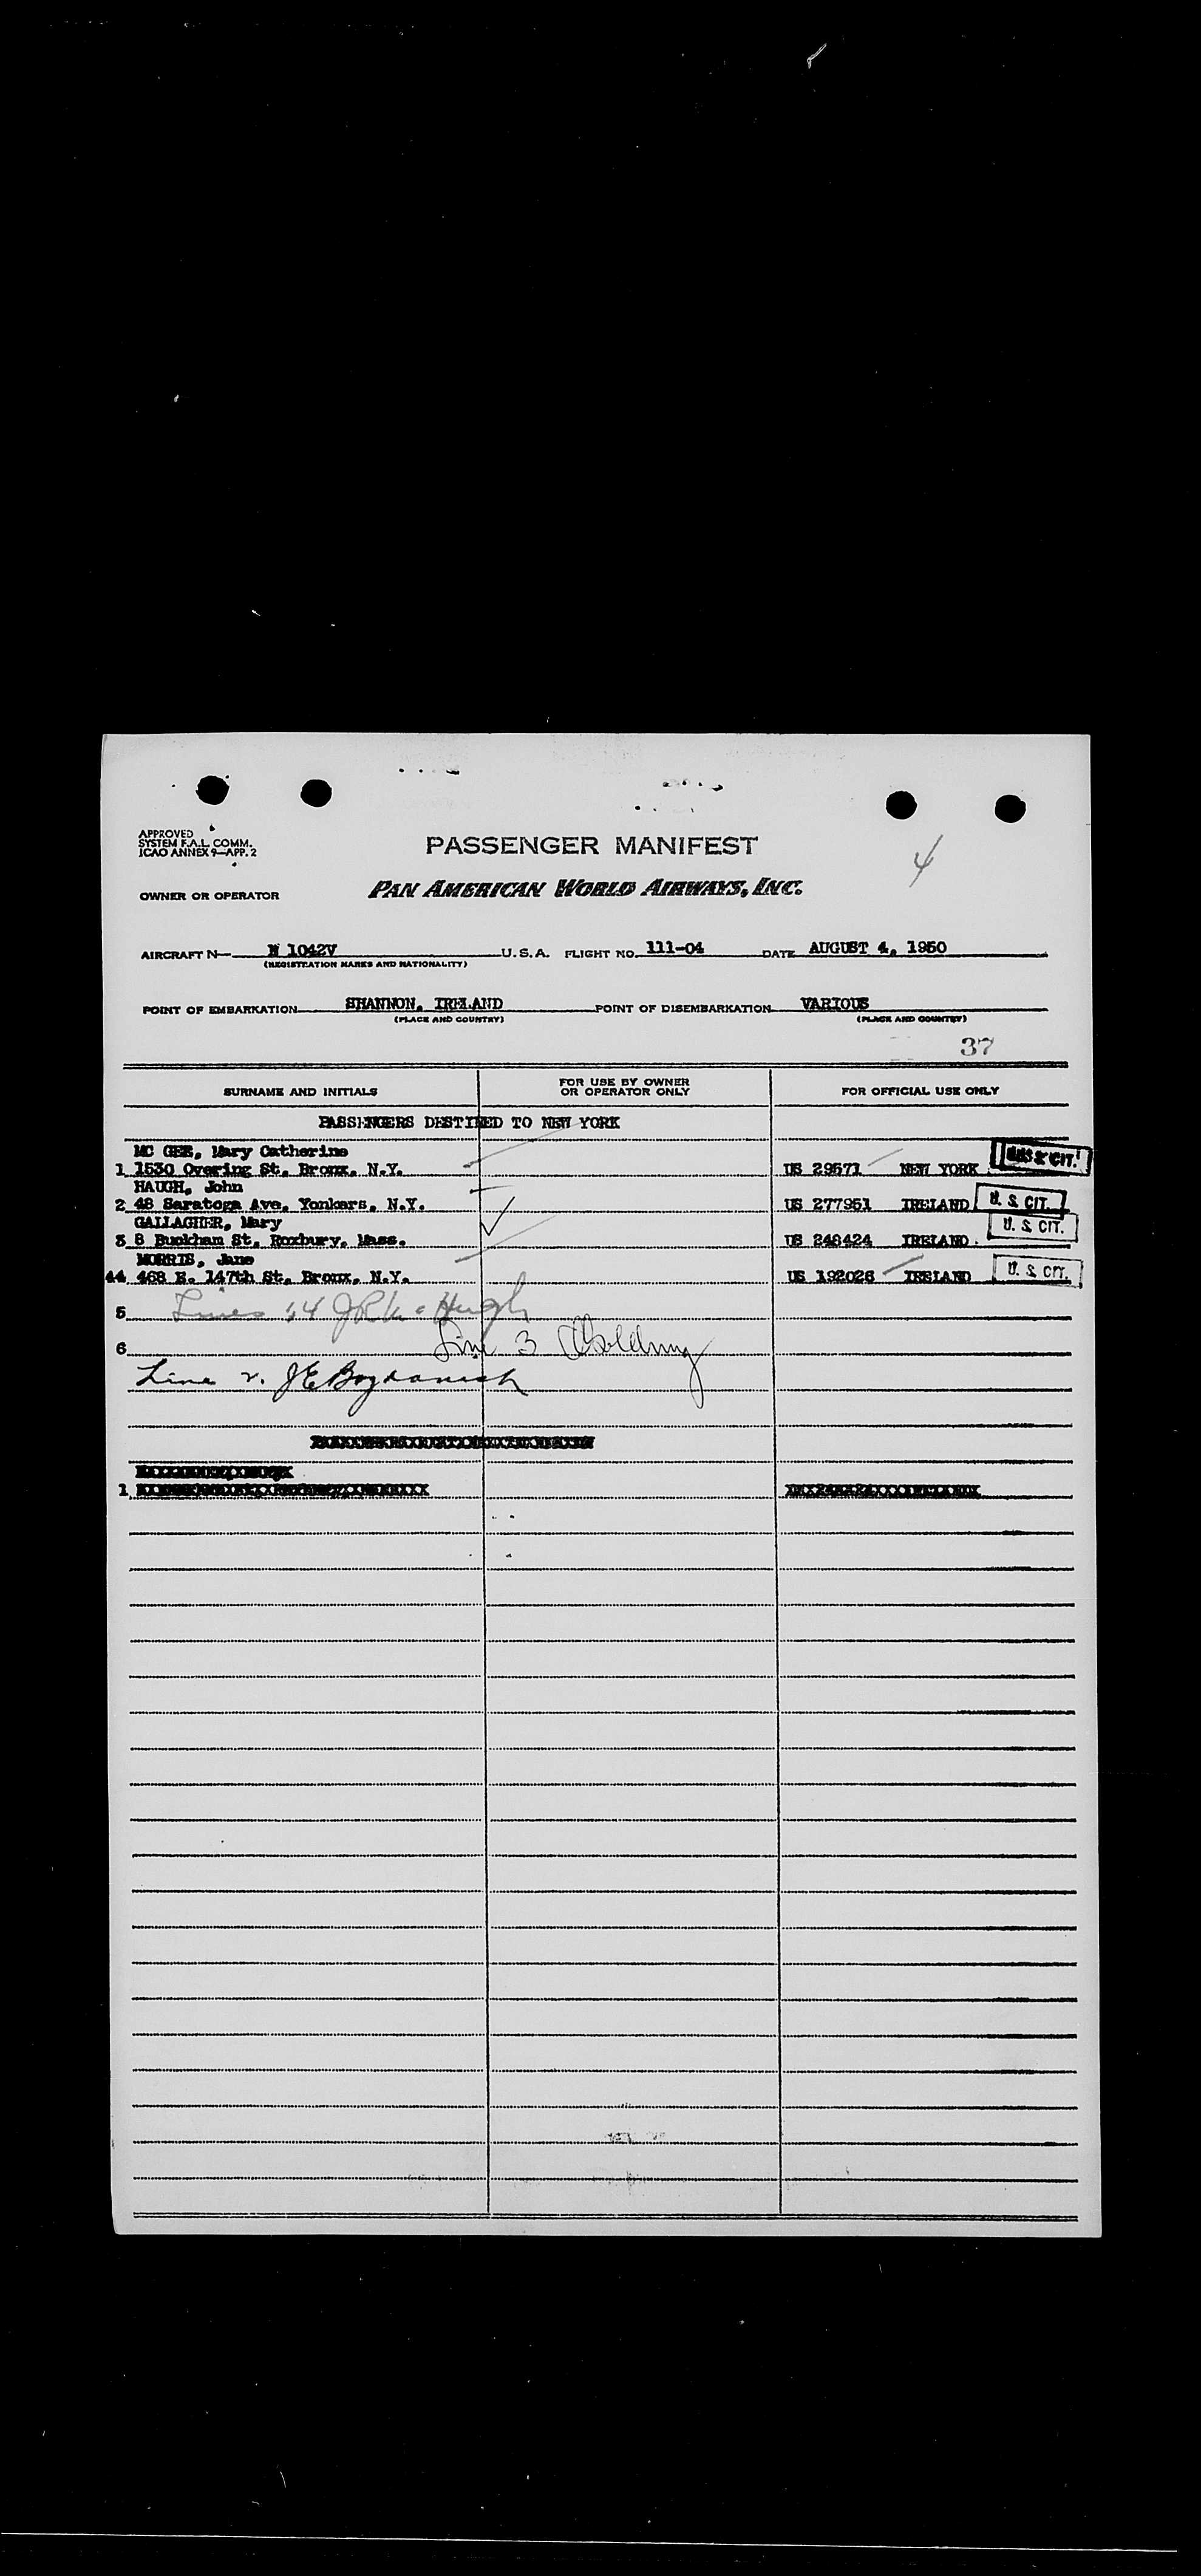 4
APPROVED
SYSTEM F.A.L. COMM.
ICAO ANNEX 9—APP. 2
PASSENGER MANIFEST
OWNER OR OPERATOR
PAN AMERICAN WORLD AIRWAYS, INC.
AIRCRAFT N— N 1042V U.S.A. FLIGHT NO. 111-04 DATE AUGUST 4, 1950
(REGISTRATION MARKS AND NATIONALITY)
POINT OF EMBARKATION SHANNON, IRELAND POINT OF DISEMBARKATION VARIOUS
(PLACE AND COUNTRY) (PLACE AND COUNTRY)
37
SURNAME AND INITIALS FOR USE BY OWNER OR OPERATOR ONLY FOR OFFICIAL USE ONLY
PASSENGERS DESTINED TO NEW YORK
MC GEE, Mary Catherine
1 1530 Overing St. Bronx, N.Y. US 29571 NEW YORK U. S. CIT.
HAUGH, John
2 48 Saratoga Ave. Yonkers, N.Y. US 277951 IRELAND U. S. CIT.
GALLAGHER, Mary
3 8 Buckham St. Roxbury, Mass. US 248424 IRELAND. U. S. CIT.
MORRIS, Jane
44 468 E. 147th St. Bronx, N.Y. US 192026 IRELAND U. S. CIT.
5 Lines 1,4
6 Line 3
Line 2.
1